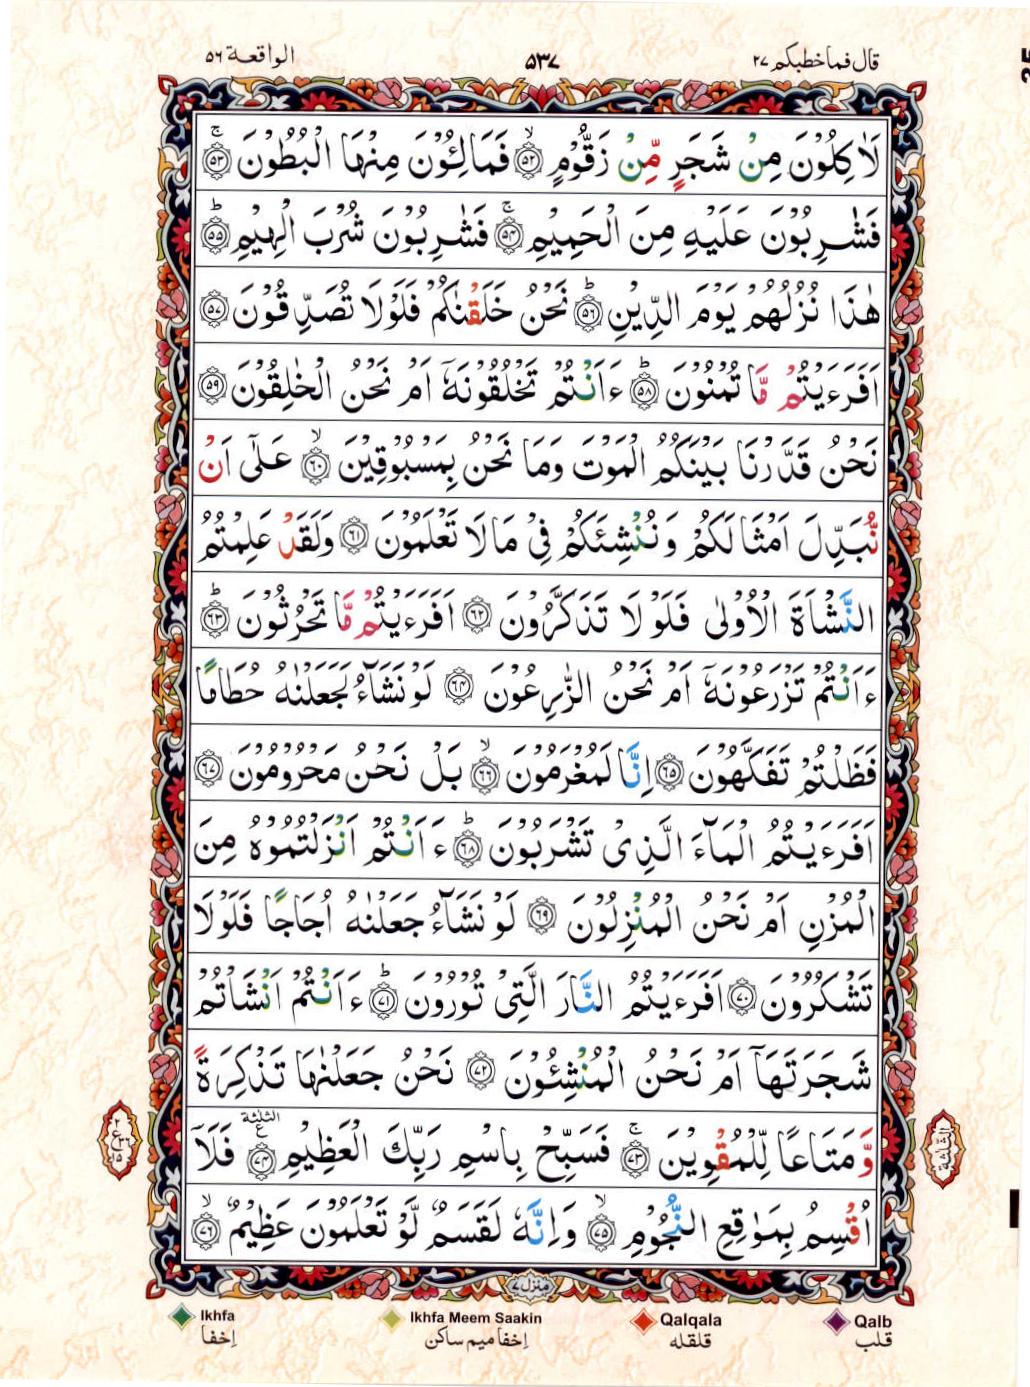 قال فماخطبكم ٢٧ ٥٣٧ الواقعة ٥٦
لَاٰكِلُوْنَ مِنْ شَجَرٍ مِّنْ زَقُّوْمٍ ۙ‏﴿۵۲﴾ فَمَالِـُٔوْنَ مِنْهَا الْبُطُوْنَ ۚ‏﴿۵۳﴾
فَشٰرِبُوْنَ عَلَيْهِ مِنَ الْحَمِيْمِ ۚ‏﴿۵۴﴾ فَشٰرِبُوْنَ شُرْبَ الْهِيْمِ ؕ‏﴿۵۵﴾
هٰذَا نُزُلُهُمْ يَوْمَ الدِّيْنِ ؕ‏﴿۵۶﴾ نَحْنُ خَلَقْنٰكُمْ فَلَوْلَا تُصَدِّقُوْنَ ‏﴿۵۷﴾
اَفَرَءَيْتُمْ مَّا تُمْنُوْنَ ؕ‏﴿۵۸﴾ ءَاَنْتُمْ تَخْلُقُوْنَهٗۤ اَمْ نَحْنُ الْخٰلِقُوْنَ ‏﴿۵۹﴾
نَحْنُ قَدَّرْنَا بَيْنَكُمُ الْمَوْتَ وَمَا نَحْنُ بِمَسْبُوْقِيْنَ ۙ‏﴿۶۰﴾ عَلٰٓى اَنْ
نُّبَدِّلَ اَمْثَالَكُمْ وَنُنْشِئَكُمْ فِىْ مَا لَا تَعْلَمُوْنَ ‏﴿۶۱﴾ وَلَقَدْ عَلِمْتُمُ
النَّشْاَةَ الْاُوْلٰى فَلَوْلَا تَذَكَّرُوْنَ ‏﴿۶۲﴾ اَفَرَءَيْتُمْ مَّا تَحْرُثُوْنَ ؕ‏﴿۶۳﴾
ءَاَنْتُمْ تَزْرَعُوْنَهٗۤ اَمْ نَحْنُ الزّٰرِعُوْنَ ‏﴿۶۴﴾ لَوْ نَشَآءُ لَجَعَلْنٰهُ حُطَامًا
فَظَلْتُمْ تَفَكَّهُوْنَ ‏﴿۶۵﴾ اِنَّا لَمُغْرَمُوْنَ ۙ‏﴿۶۶﴾ بَلْ نَحْنُ مَحْرُوْمُوْنَ ‏﴿۶۷﴾
اَفَرَءَيْتُمُ الْمَآءَ الَّذِىْ تَشْرَبُوْنَ ؕ‏﴿۶۸﴾ ءَاَنْتُمْ اَنْزَلْتُمُوْهُ مِنَ
الْمُزْنِ اَمْ نَحْنُ الْمُنْزِلُوْنَ ‏﴿۶۹﴾ لَوْ نَشَآءُ جَعَلْنٰهُ اُجَاجًا فَلَوْلَا
تَشْكُرُوْنَ ‏﴿۷۰﴾ اَفَرَءَيْتُمُ النَّارَ الَّتِىْ تُوْرُوْنَ ؕ‏﴿۷۱﴾ ءَاَنْتُمْ اَنْشَاْتُمْ
شَجَرَتَهَاۤ اَمْ نَحْنُ الْمُنْشِـُٔوْنَ ‏﴿۷۲﴾ نَحْنُ جَعَلْنٰهَا تَذْكِرَةً
وَّمَتَاعًا لِّلْمُقْوِيْنَ ۚ‏﴿۷۳﴾ فَسَبِّحْ بِاسْمِ رَبِّكَ الْعَظِيْمِ ‏﴿۷۴﴾ الثلثة ع فَلَاۤ
اُقْسِمُ بِمَوٰقِعِ النُّجُوْمِ ۙ‏﴿۷۵﴾ وَاِنَّهٗ لَقَسَمٌ لَّوْ تَعْلَمُوْنَ عَظِيْمٌ ۙ‏﴿۷۶﴾
الثلثة
منزل ٧
Ikhfa Ikhfa Meem Saakin Qalqala Qalb
إخفا إخفا ميم ساكن قلقله قلب